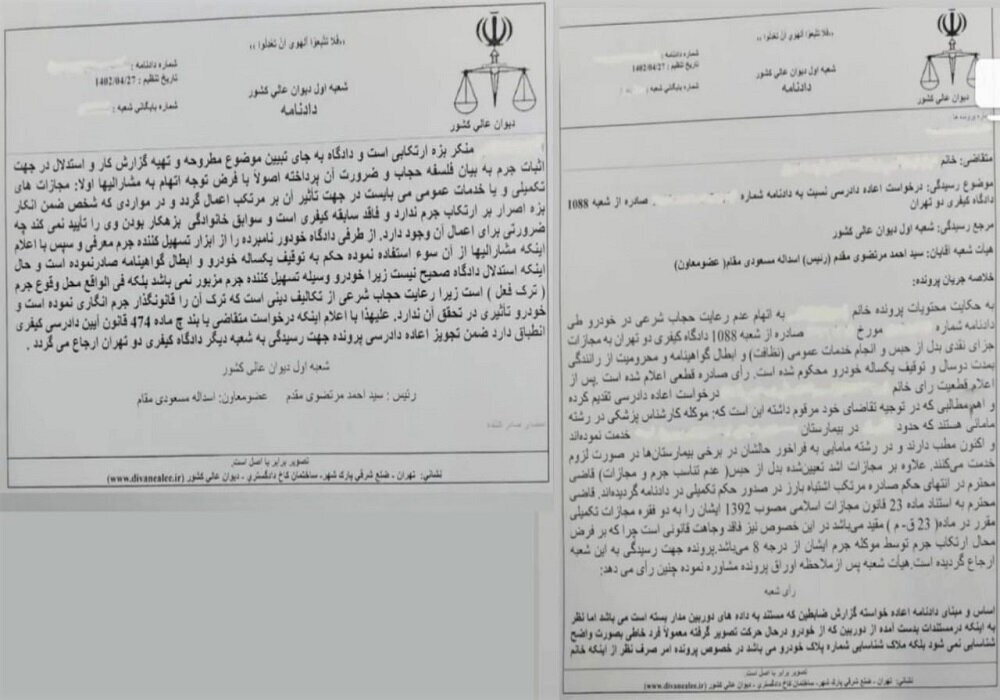 ,,فلا تتبعوا الهوی ان تعدلوا ,,
شماره دادنامه :
تاریخ تنظیم : 1402/04/27
شماره بایگانی شعبه :
شعبه اول دیوان عالی کشور
دادنامه
دیوان عالی کشور
متقاضی: خانم
موضوع رسیدگی: درخواست اعاده دادرسی نسبت به دادنامه شماره صادره از شعبه 1088
دادگاه کیفری دو تهران
مرجع رسیدگی: شعبه اول دیوان عالی کشور
هیأت شعبه آقایان: سید احمد مرتضوی مقدم (رئیس) اسداله مسعودی مقام( عضومعاون)
خلاصه جریان پرونده:
به حکایت محتویات پرونده خانم به اتهام عدم رعایت حجاب شرعی در خودرو طی
دادنامه شماره مورخ صادره از شعبه 1088 دادگاه کیفری دو تهران به مجازات
جزای نقدی بدل از حبس و انجام خدمات عمومی (نظافت) و ابطال گواهینامه و محرومیت از رانندگی
بمدت دوسال و توقیف یکساله خودرو محکوم شده است. رأی صادره قطعی اعلام شده است .پس از
اعلام قطعیت رای خانم درخواست اعاده دادرسی تقدیم کرده
و اهم مطالبی که در توجیه تقاضای خود مرقوم داشته این است که: موکله کارشناس پزشکی در رشته
مامائی هستند که حدود در بیمارستان خدمت نموده‌اند
و اکنون مطب دارند و در رشته مامایی به فراخور حالشان در برخی بیمارستان‌ها در صورت لزوم
خدمت می‌کنند. علاوه بر مجازات اشد تعیین‌شده بدل از حبس( عدم تناسب جرم و مجازات) قاضی
محترم در انتهای حکم صادره مرتکب اشتباه بارز در صدور حکم تکمیلی در دادنامه گردیده‌اند. قاضی
محترم به استناد ماده 23 قانون مجازات اسلامی مصوب 1392 ایشان را به دو فقره مجازات تکمیلی
مقرر در ماده( 23 ق- م ) مقید می‌باشد در این خصوص نیز فاقد وجاهت قانونی است چرا که بر فرض
محال ارتکاب جرم توسط موکله جرم ایشان از درجه 8 می‌باشد.پرونده جهت رسیدگی به این شعبه
ارجاع گردیده است.هیأت شعبه پس ازملاحظه اوراق پرونده مشاوره نموده چنین رأی می دهد:
رأی شعبه
اساس و مبنای دادنامه اعاده خواسته گزارش ضابطین که مستند به داده های دوربین مدار بسته است می باشد اما نظر
به اینکه درمستندات بدست آمده از دوربین که از خودرو درحال حرکت تصویر گرفته معمولاً فرد خاطی بصورت واضح
شناسایی نمی شود بلکه ملاک شناسایی شماره پلاک خودرو می باشد در خصوص پرونده امر صرف نظر از اینکه خانم
تصویر برابر با اصل است.
نشانی: تهران - ضلع شرقی پارک شهر- ساختمان کاخ دادگستری - دیوان عالی کشور (www.divanealee.ir)
,,فلا تتبعوا الهوی ان تعدلوا ,,
شماره دادنامه :
تاریخ تنظیم : 1402/04/27
شماره بایگانی شعبه :
شعبه اول دیوان عالی کشور
دادنامه
دیوان عالی کشور
منکر بزه ارتکابی است و دادگاه به جای تبیین موضوع مطروحه و تهیه گزارش کار و استدلال در جهت
اثبات جرم به بیان فلسفه حجاب و ضرورت آن پرداخته اصولاً با فرض توجه اتهام به مشارالیها اولا: مجازات های
تکمیلی و یا خدمات عمومی می بایست در جهت تأثیر آن بر مرتکب اعمال گردد و در مواردی که شخص ضمن انکار
بزه اصرار بر ارتکاب جرم ندارد و فاقد سابقه کیفری است و سوابق خانوادگی بزهکار بودن وی را تأیید نمی کند چه
ضرورتی برای اعمال آن وجود دارد. از طرفی دادگاه خودور نامبرده را از ابزار تسهیل کننده جرم معرفی و سپس با اعلام
اینکه مشارالیها از آن سوء استفاده نموده حکم به توقیف یکساله خودرو و ابطال گواهینامه صادرنموده است و حال
اینکه استدلال دادگاه صحیح نیست زیرا خودرو وسیله تسهیل کننده جرم مزبور نمی باشد بلکه فی الواقع محل وقوع جرم
( ترک فعل ) است زیرا رعایت حجاب شرعی از تکالیف دینی است که ترک آن را قانونگذار جرم انگاری نموده است و
خودرو تأثیری در تحقق آن ندارد. علیهذا با اعلام اینکه درخواست متقاضی با بند چ ماده 474 قانون آیین دادرسی کیفری
انطباق دارد ضمن تجویز اعاده دادرسی پرونده جهت رسیدگی به شعبه دیگر دادگاه کیفری دو تهران ارجاع می گردد .
شعبه اول دیوان عالی کشور
رئیس : سید احمد مرتضوی مقدم عضومعاون: اسداله مسعودی مقام
تصویر برابر با اصل است.
نشانی: تهران - ضلع شرقی پارک شهر- ساختمان کاخ دادگستری - دیوان عالی کشور (www.divanealee.ir)